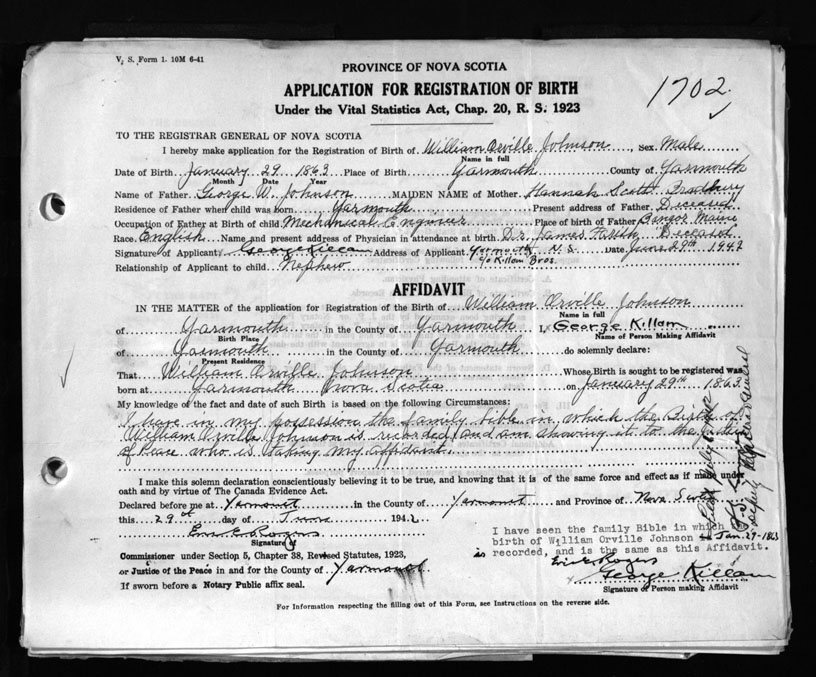 V. S. Form 1. 10M 6-41
PROVINCE OF NOVA SCOTIA
APPLICATION FOR REGISTRATION OF BIRTH
Under the Vital Statistics Act, Chap. 20, R. S. 1923
1702
TO THE REGISTRAR GENERAL OF NOVA SCOTIA
I hereby make application for the Registration of Birth of William Orville Johnson, Sex Male
Name in full
Date of Birth January 29 1863 Place of Birth Yarmouth County of Yarmouth
Month Date Year
Name of Father George W. Johnson MAIDEN NAME of Mother Hannah Scott Bradbury
Residence of Father when child was born Yarmouth Present address of Father Deceased
Occupation of Father at Birth of child Mechanical Engineer Place of birth of Father Bangor Maine
Race English Name and present address of Physician in attendance at birth Dr. James Deceased
Signature of Applicant George Killam Address of Applicant Yarmouth N.S. Date June 29th 1942
c/o Killam Bros.
Relationship of Applicant to child Nephew
AFFIDAVIT
IN THE MATTER of the application for Registration of the Birth of William Orville Johnson
Name in full
of Yarmouth in the County of Yarmouth I, George Killam
Birth Place Name of Person Making Affidavit
of Yarmouth in the County of Yarmouth do solemnly declare:
Present Residence
That William Orville Johnson Whose Birth is sought to be registered was
born at Yarmouth Nova Scotia on January 29th 1863
My knowledge of the fact and date of such Birth is based on the following Circumstances:
I have in my possession the family bible in which the Birth of
William Orville Johnson is recorded and am showing it to the Justice
of Peace who is taking my affidavit.
I make this solemn declaration conscientiously believing it to be true, and knowing that it is of the same force and effect as if made under
oath and by virtue of The Canada Evidence Act.
Declared before me at Yarmouth in the County of Yarmouth and Province of Nova Scotia
this 29th day of June 1942
Rogers
Signature of
Commissioner under Section 5, Chapter 38, Revised Statutes, 1923,
or Justice of the Peace in and for the County of Yarmouth
If sworn before a Notary Public affix seal.
I have seen the family Bible in which the
birth of William Orville Johnson Jan. 29-1863
is recorded, and is the same as this Affidavit.
Rogers
George Killam
Signature of Person making Affidavit
Deputy Registrar General
For Information respecting the filling out of this Form, see Instructions on the reverse side.